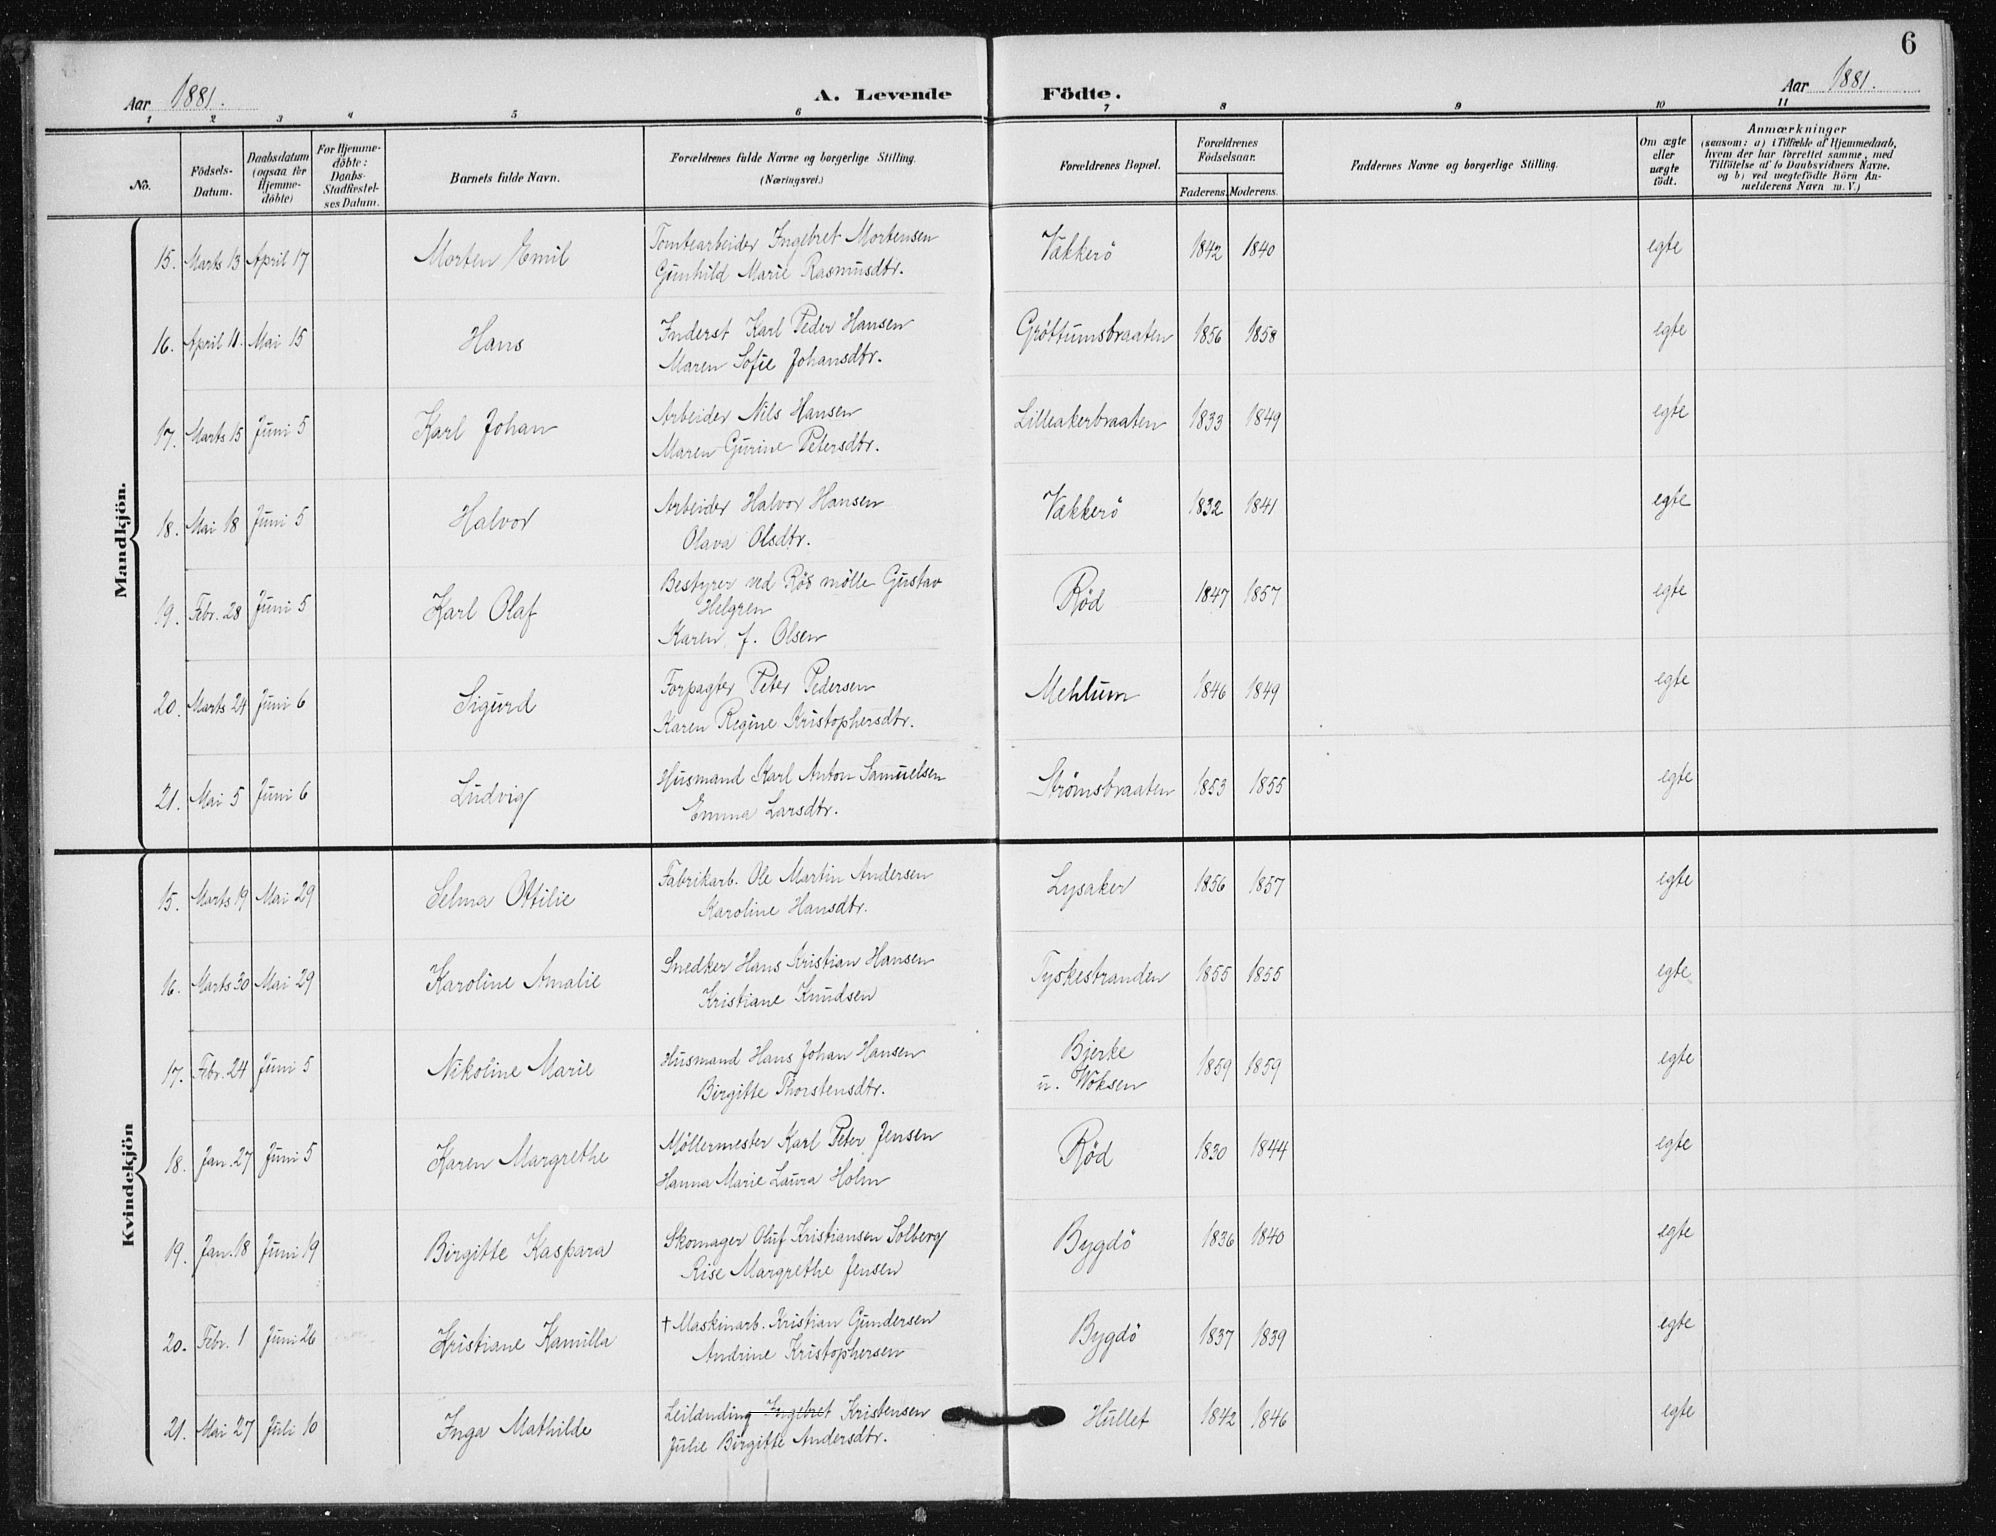 6
Aar 1881.
A. Levende Födte.
Aar 1881.
1 2 3 4 5 6 7 8 9 10 11
No.
Födsels-Datum.
Daabsdatum (ogsaa for Hjemme-döbte)
For Hjemme-döbte: Daabs-Stadfæstel-ses Datum.
Barnets fulde Navn.
Forældrenes fulde Navne og borgerlige Stilling.
(Næringsvei.)
Forældrenes Bopæl.
Forældrenes Födselsaar.
Faderens. Moderens.
Faddernes Navne og borgerlige Stilling.
Om ægte eller uægte födt.
Anmærkninger
(saasom: a) i Tilfælde af Hjemmedaab, hvem der har forrettet samme, med Tilföielse af to Daabsvidners Navne, og b) ved uægtefödte Börn An-melderens Navn m. V.)
Mandkjön.
15. Marts 13 April 17 Morten Emil Tomtearbeider Ingebret Mortensen Vækkerö 1842 1840 egte
Gunhild Marie Rasmusdtr.
16. April 11. Mai 15 Hans Inderst Karl Peder Hansen Gröttumsbraaten 1856 1858 egte
Maren Sofie Johansdtr.
17. Marts 15 Juni 5 Karl Johan Arbeider Nils Hansen Lilleakerbraaten 1833 1849 egte
Maren Gurine Petersdtr.
18. Mai 18 Juni 5 Halvor Arbeider Halvor Hansen Vækkerö 1832 1841 egte
Olava Olsdtr.
19. Febr. 28 Juni 5 Karl Olaf Bestyrer ved Røds mølle Gustav Rød 1847 1857 egte
Helgren
Karen f. Olsen
20. Marts 24 Juni 6 Sigurd Forpagter Peter Pedersen Mehlum 1846 1849 egte
Karen Regine Kristophersdtr.
21. Mai 5 Juni 6 Ludvig Husmand Karl Anton Samuelsen Strømsbraaten 1853 1855 egte
Emma Larsdtr.
Kvindekjön
15. Marts 19 Mai 29 Selma Ottilie Fabrikarb. Ole Martin Andersen Lysaker 1856 1857 egte
Karoline Hansdtr.
16. Marts 30 Mai 29 Karoline Amalie Snedker Hans Kristian Hansen Tyskestranden 1855 1855 egte
Kristiane Knudsen
17. Febr. 24 Juni 5 Nikoline Marie Husmand Hans Johan Hansen Bjerke u. Woksen 1859 1859 egte
Birgitte Thorstensdtr.
18. Jan. 27 Juni 5 Karen Margrethe Møllermester Karl Peter Jensen Rød 1830 1844 egte
Hanna Marie Laura Holm
19. Jan. 18 Juni 19 Birgitte Kaspara Skomager Oluf Kristiansen Solberg Bygdö 1836 1840 egte
Rise Margrethe Jensen
20. Febr. 1 Juni 26 Kristiane Kamilla † Maskinarb. Kristian Gundersen Bygdö 1837 1839 egte
Andrine Kristophersen
21. Mai 27 Juli 10 Inga Mathilde Leilænding Ingebret Kristensen Hullet 1842 1846 egte
Julie Birgitte Andersdtr.